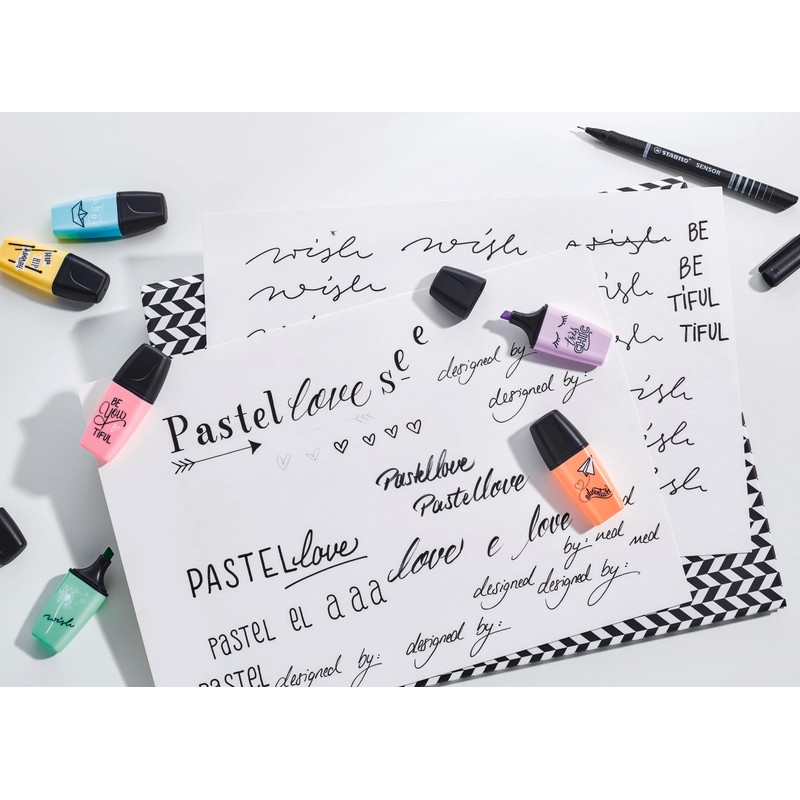 STABILO SENSOR
wish wish wish BE
wish wish BE
TIFUL
wish TIFUL
wish
wish
wish
see
Pastel love
designed by
designed by:
Pastellove
Pastellove
PASTEL love love e love
by: ned ned
pastel el a a a designed designed by:
designed by:
PASTEL designed by:
HIP HIP
BE
YOU
TIFUL
très
CHIC
adventure
wish